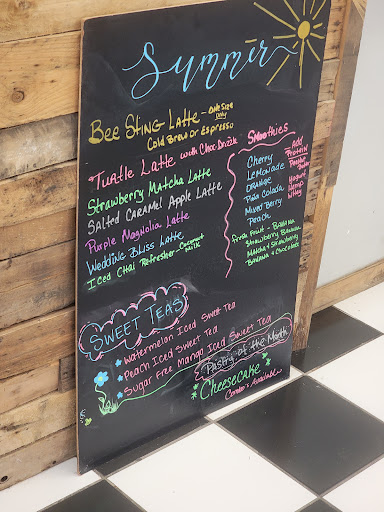 Summer
Bee Sting Latte - one size only
Cold Brew or Espresso
Turtle Latte with Choc Drizzle
Strawberry Matcha Latte
Salted Caramel Apple Latte
Purple Magnolia Latte
Wedding Bliss Latte
Iced Chai Refresher - Coconut Milk
Smoothies
Cherry
Lemonade
Orange
Pina Colada
Mixed Berry
Peach
- Add Protein
Peanut Butter
Yogurt
Hemp
Whey
Fresh Fruit - Banana
Strawberry Banana
Matcha + Strawberry
Banana + Chocolate
Sweet Teas
Watermelon Iced Sweet Tea
Peach Iced Sweet Tea
Sugar Free Mango Iced Sweet Tea
Pastry of the Month
Cheesecake
Available